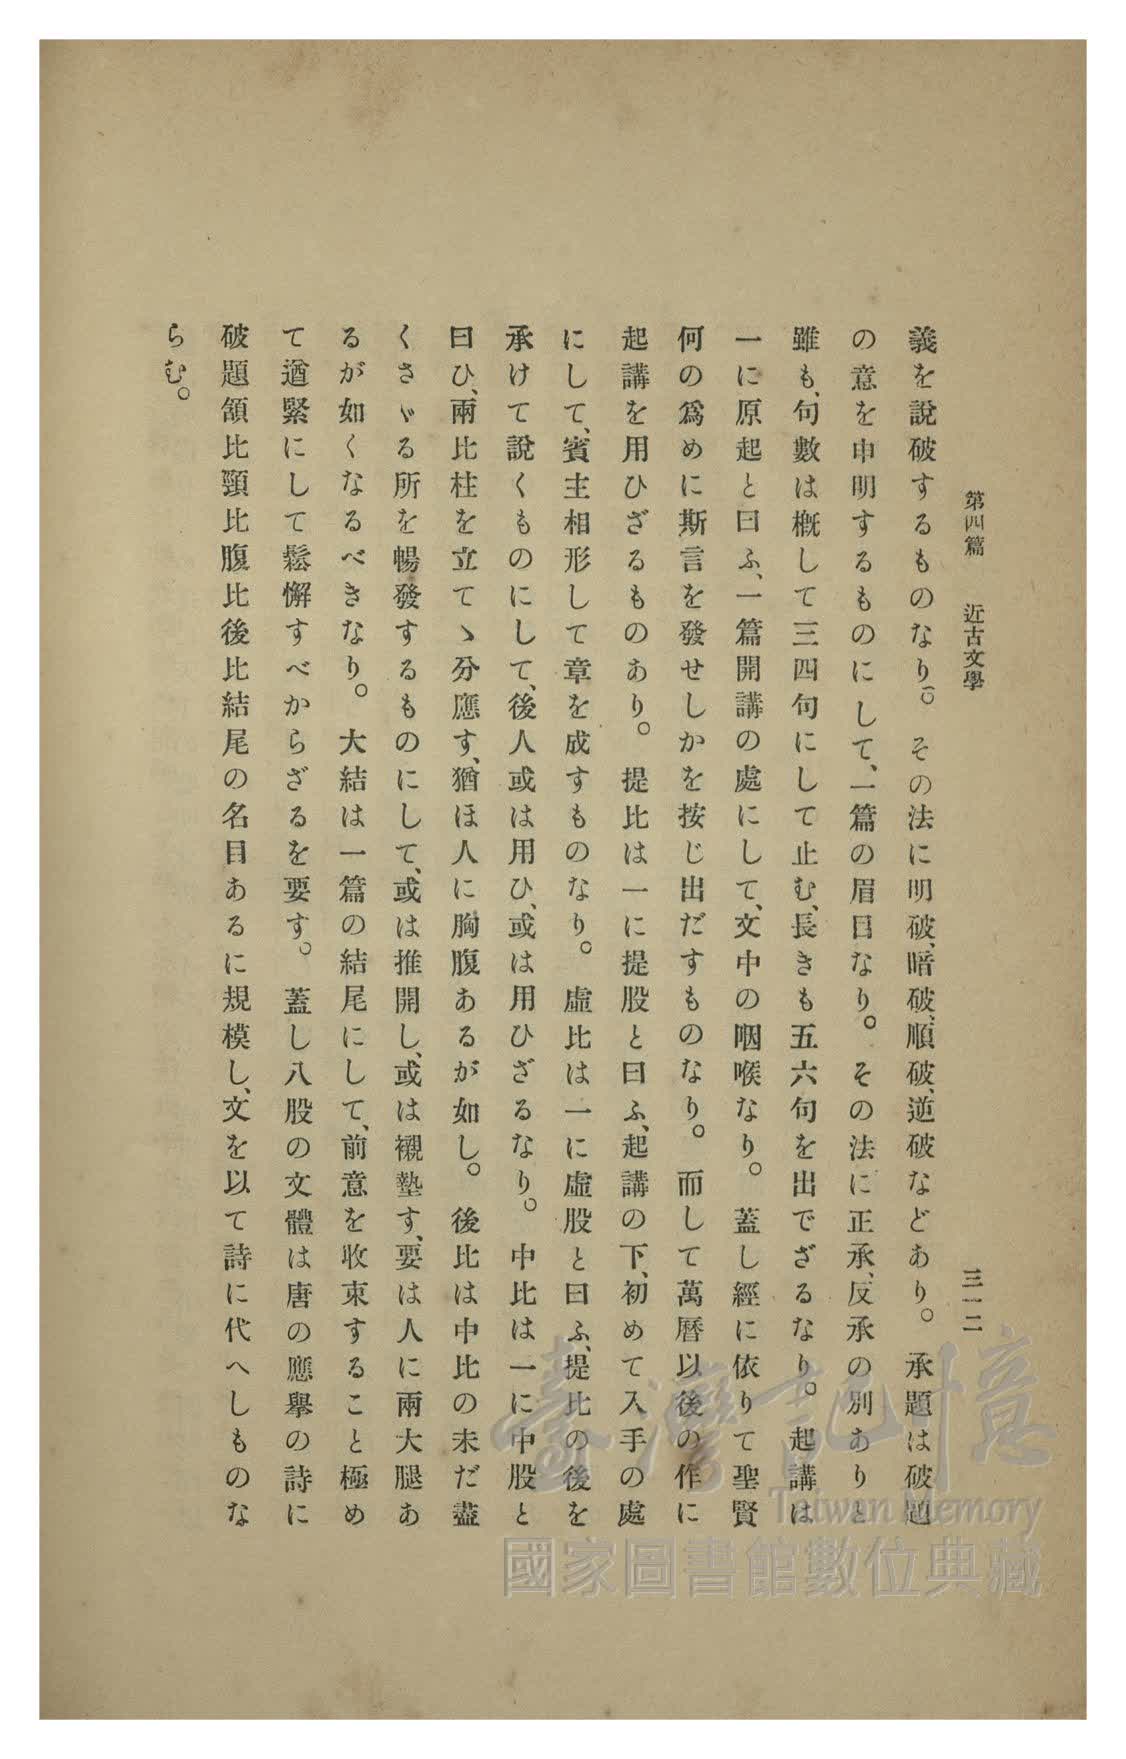 第四篇　近古文學
三一二
義を說破するものなり。その法に明破、暗破、順破、逆破などあり。承題は破題
の意を申明するものにして、一篇の眉目なり。その法に正承、反承の別ありと
雖も、句數は槪して三四句にして止む、長きも五六句を出でざるなり。起講は
一に原起と曰ふ、一篇開講の處にして、文中の咽喉なり。蓋し經に依りて聖賢
何の爲めに斯言を發せしかを按じ出だすものなり。而して萬曆以後の作に
起講を用ひざるものあり。提比は一に提股と曰ふ、起講の下、初めて入手の處
にして、賓主相形して章を成すものなり。虛比は一に虛股と曰ふ、提比の後を
承けて說くものにして、後人或は用ひ、或は用ひざるなり。中比は一に中股と
曰ひ、兩比柱を立てゝ分應す、猶ほ人に胸腹あるが如し。後比は中比の未だ盡
くさゞる所を暢發するものにして、或は推開し、或は襯墊す、要は人に兩大腿あ
るが如くなるべきなり。大結は一篇の結尾にして、前意を收束すること極め
て遒緊にして鬆懈すべからざるを要す。蓋し八股の文體は唐の應擧の詩に
破題頷比頸比腹比後比結尾の名目あるに規模し、文を以て詩に代へしものな
らむ。
臺灣記憶
Taiwan Memory
國家圖書館數位典藏